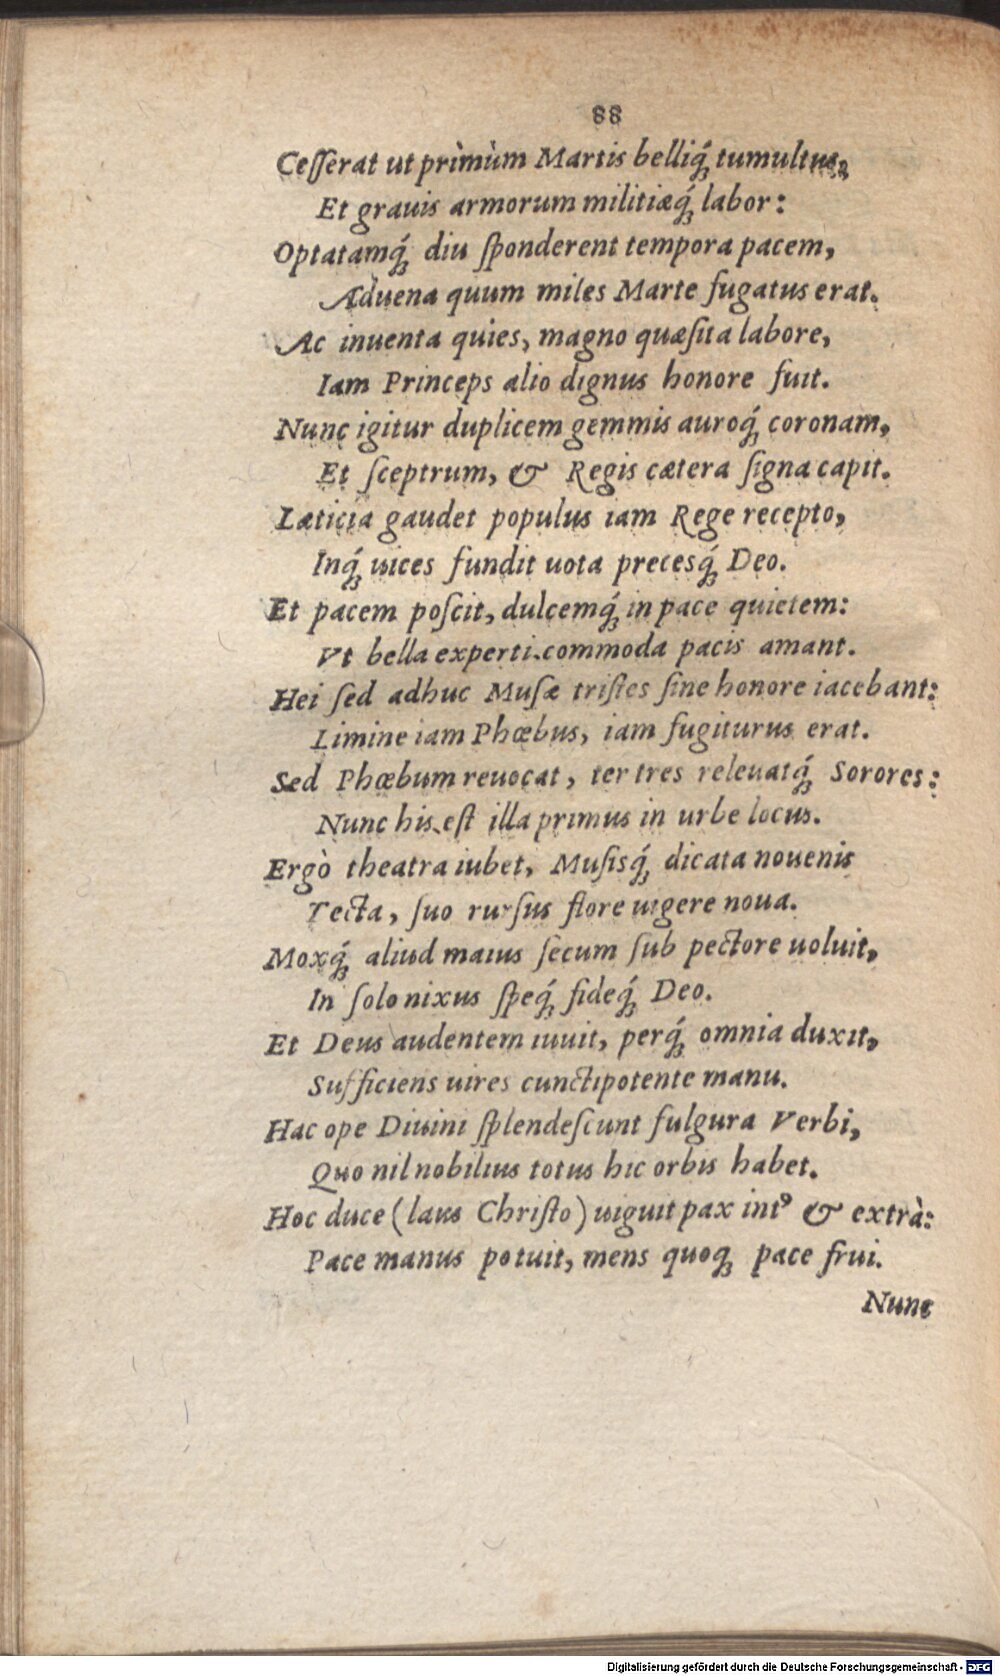 88
Ceſſerat ut prìmùm Martis belliq́ꝫ tumultus,
Et grauis armorum militiæq́ꝫ labor:
Optatamq́ꝫ diu ſponderent tempora pacem,
Aduena quum miles Marte fugatus erat.
Ac inuenta quies, magno quæſita labore,
Iam Princeps alio dignus honore fuit.
Nunc igitur duplicem gemmis auroq́ꝫ coronam,
Et ſceptrum, & Regis cætera ſigna capit.
Læticia gaudet populus iam Rege recepto,
Inq́ꝫ uices fundit uota precesq́ꝫ Deo.
Et pacem poſcit, dulcemq́ꝫ in pace quietem:
Vt bella experti commoda pacis amant.
Hei ſed adhuc Muſæ triſtes ſine honore iacebant:
Limine iam Phœbus, iam fugiturus erat.
Sed Phœbum reuocat, ter tres releuatq́ꝫ Sorores:
Nunc his eſt illa primus in urbe locus.
Ergò theatra iubet, Muſisq́ꝫ dicata nouenis
Tecta, ſuo rurſus flore uigere noua.
Moxq́ꝫ aliud maius ſecum ſub pectore uoluit,
In ſolo nixus ſpeq́ꝫ fideq́ꝫ Deo.
Et Deus audentem iuuit, perq́ꝫ omnia duxit,
Sufficiens uires cunctipotente manu.
Hac ope Diuini ſplendeſcunt fulgura Verbi,
Quo nil nobilius totus hic orbis habet.
Hoc duce (laus Chriſto) uiguit pax intꝰ & extrà:
Pace manus potuit, mens quoqꝫ pace frui.
Nunc
Digitalisierung gefördert durch die Deutsche Forschungsgemeinschaft - DFG